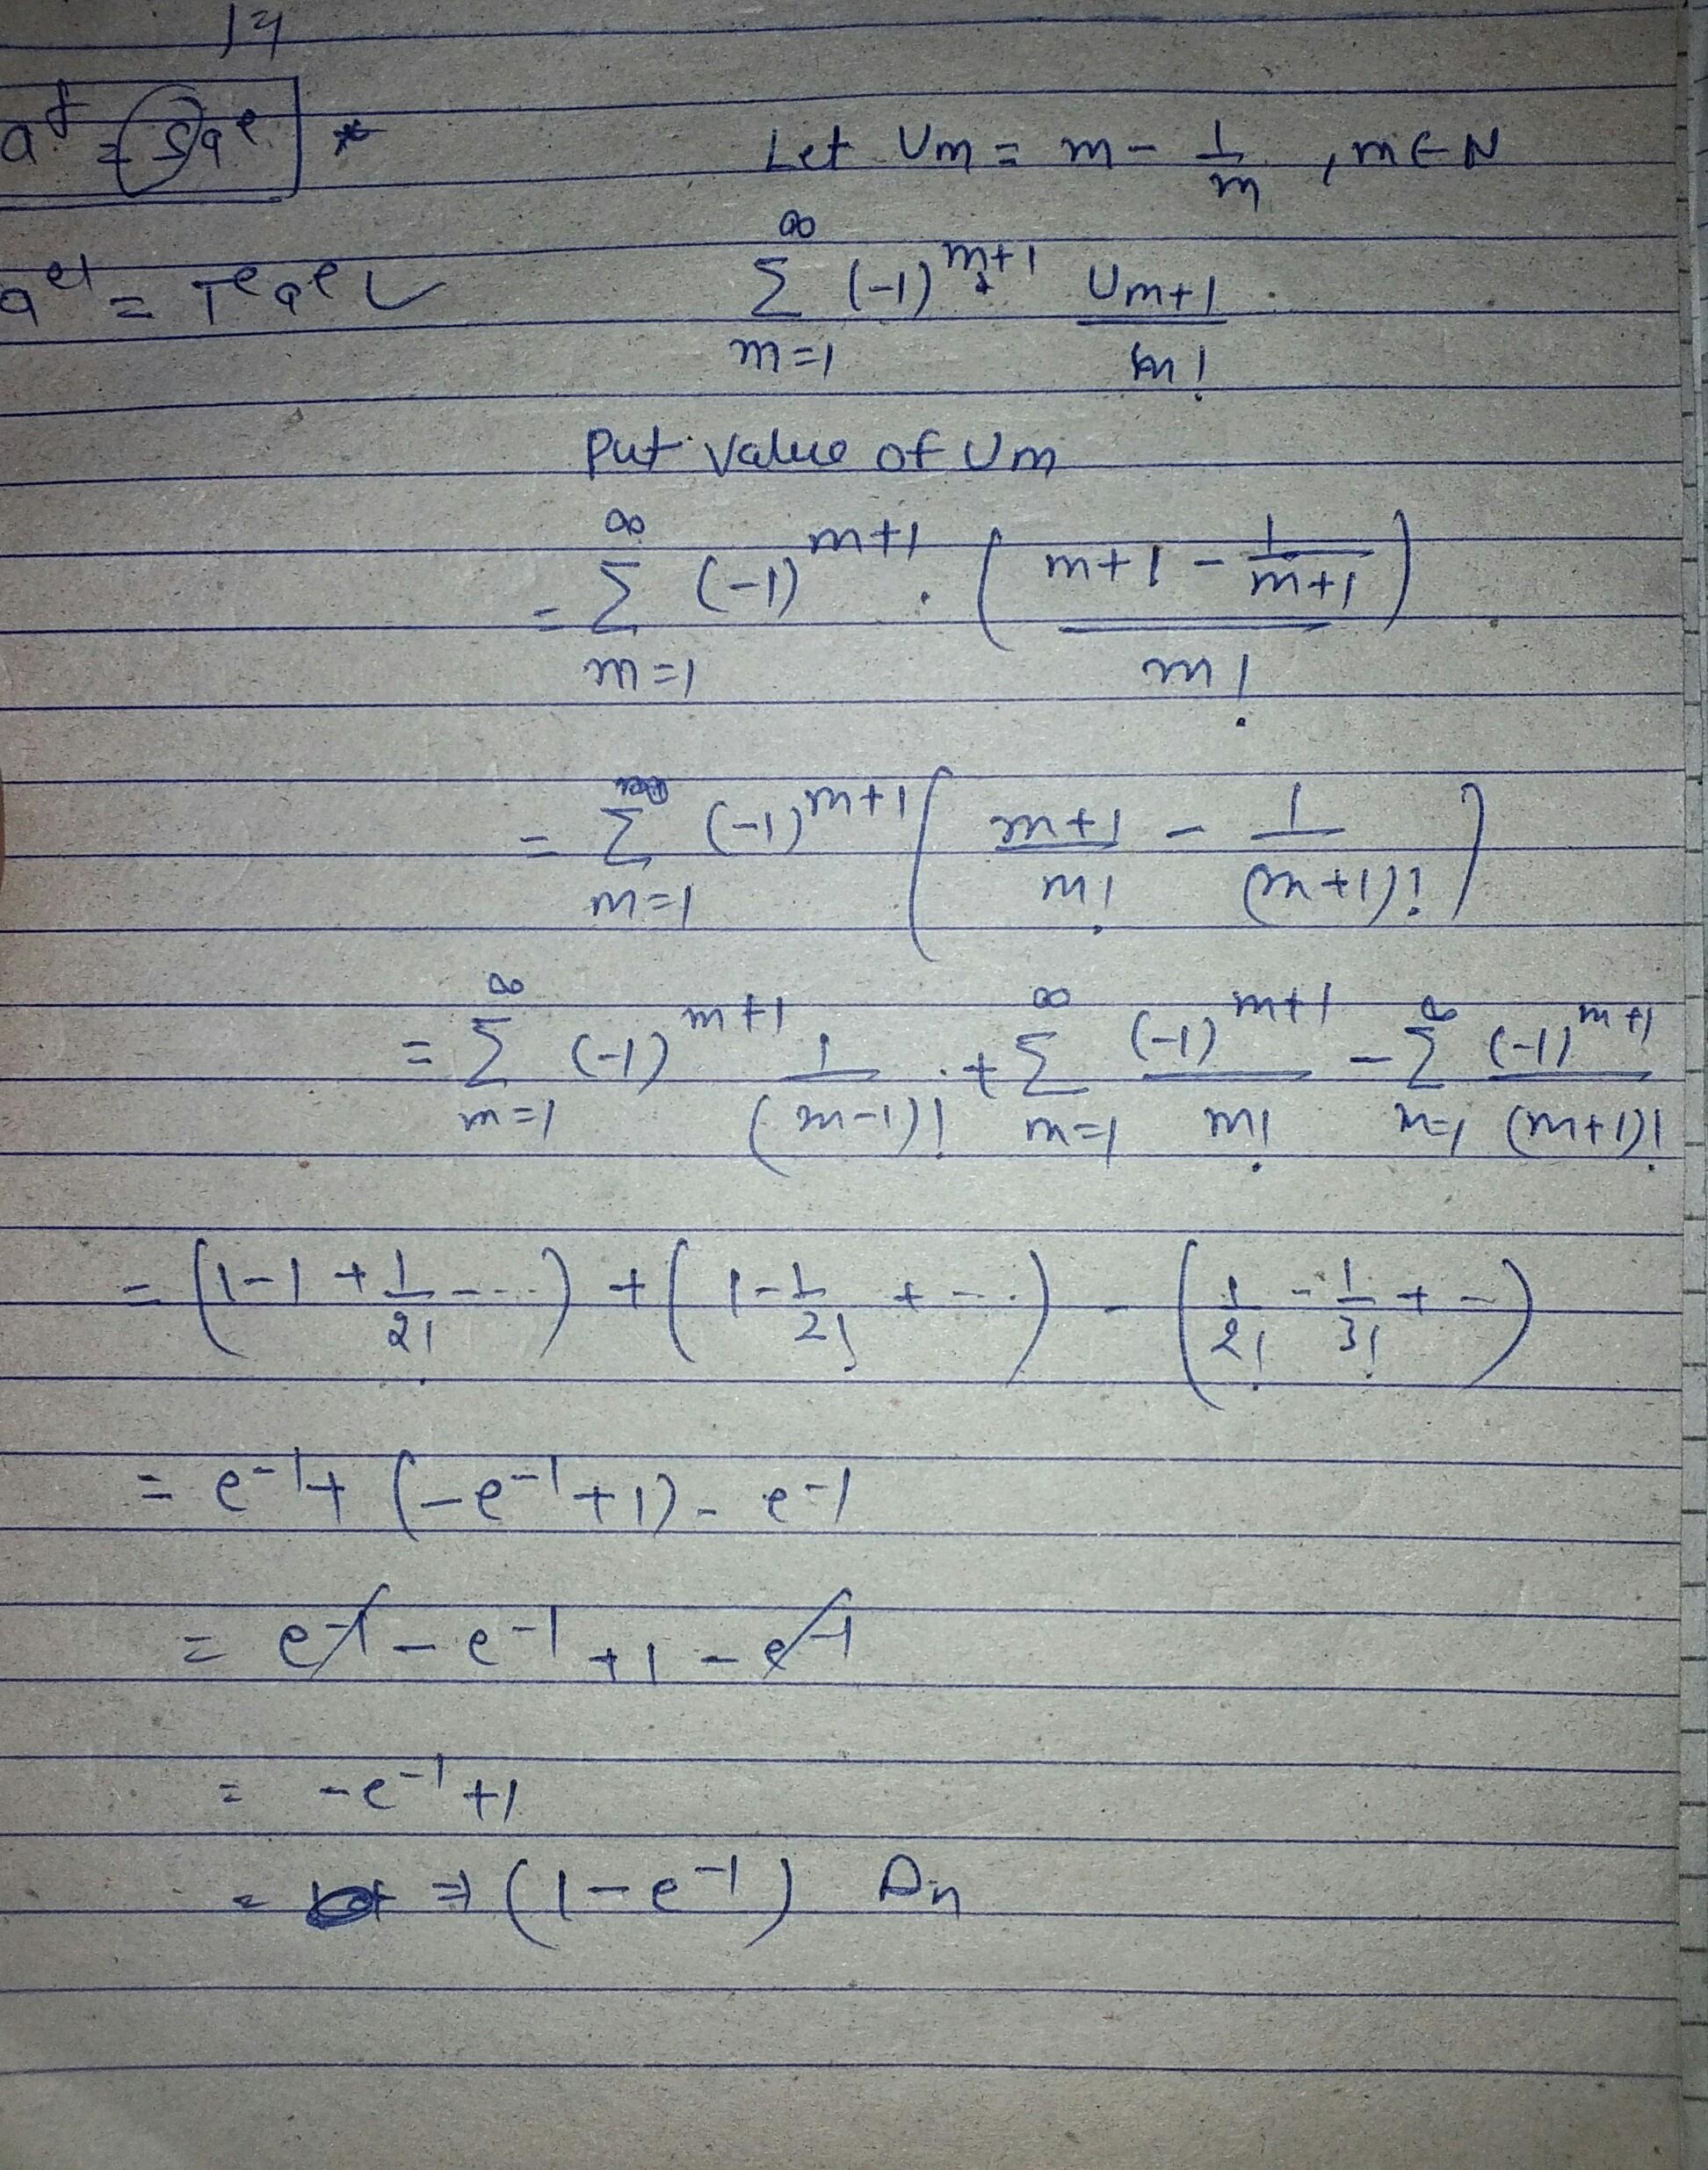 14
a^f = S a^e *
a^el = T^e a^e L
Let Um = m - 1/m , m ∈ N
∞ Σ m=1 (-1)^m+1 · Um+1 / m!
Put value of Um
= ∞ Σ m=1 (-1)^m+1 . ( m+1 - 1/m+1 ) / m!
= Σ m=1 (-1)^m+1 ( m+1 / m! - 1 / (m+1)! )
= ∞ Σ m=1 (-1)^m+1 1 / (m-1)! + ∞ Σ m=1 (-1)^m+1 / m! - ∞ Σ m=1 (-1)^m+1 / (m+1)!
= (1-1 + 1/2! - ...) + (1 - 1/2! + ...) - (1/2! - 1/3! + -)
= e^-1 + (-e^-1 + 1) - e^-1
= e^-1 - e^-1 + 1 - e^-1
= -e^-1 + 1
= ⇒ (1 - e^-1)